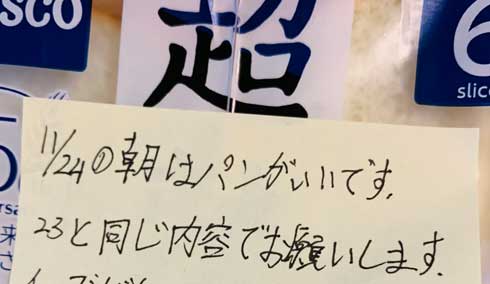 SCO
超
6
slice
11/24の朝はパンがいいです.
23と同じ内容でお願いします.